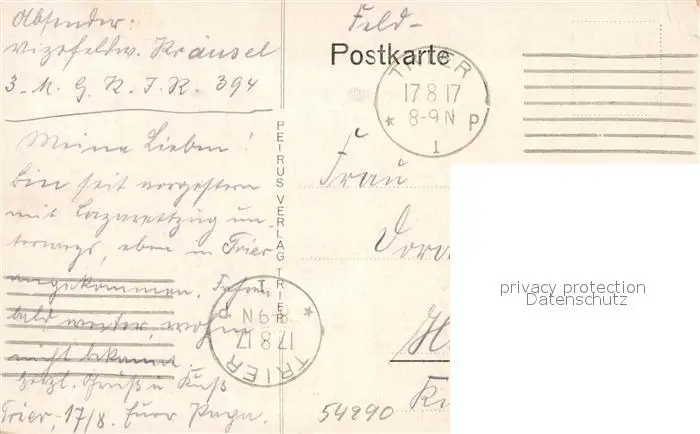 Absender:
Vizefeldw. Kräusel
3. M. G. K. I. R. 394
Meine Lieben!
bin seit vorgestern
mit Lazarettzug un-
terwegs, eben in Trier
angekommen. Fahren
bald weiter, wohin
nicht bekannt.
Herzl. Gruß u. Kuß
Trier, 17/8. Euer Papa.
PEIRUS VERLAG TRIER
Feld-
Postkarte
TRIER
17 8 17
8-9 N
* P
1
Frau
privacy protection
Datenschutz
TRIER
17 8 17
8-9 N
* P
1
54290